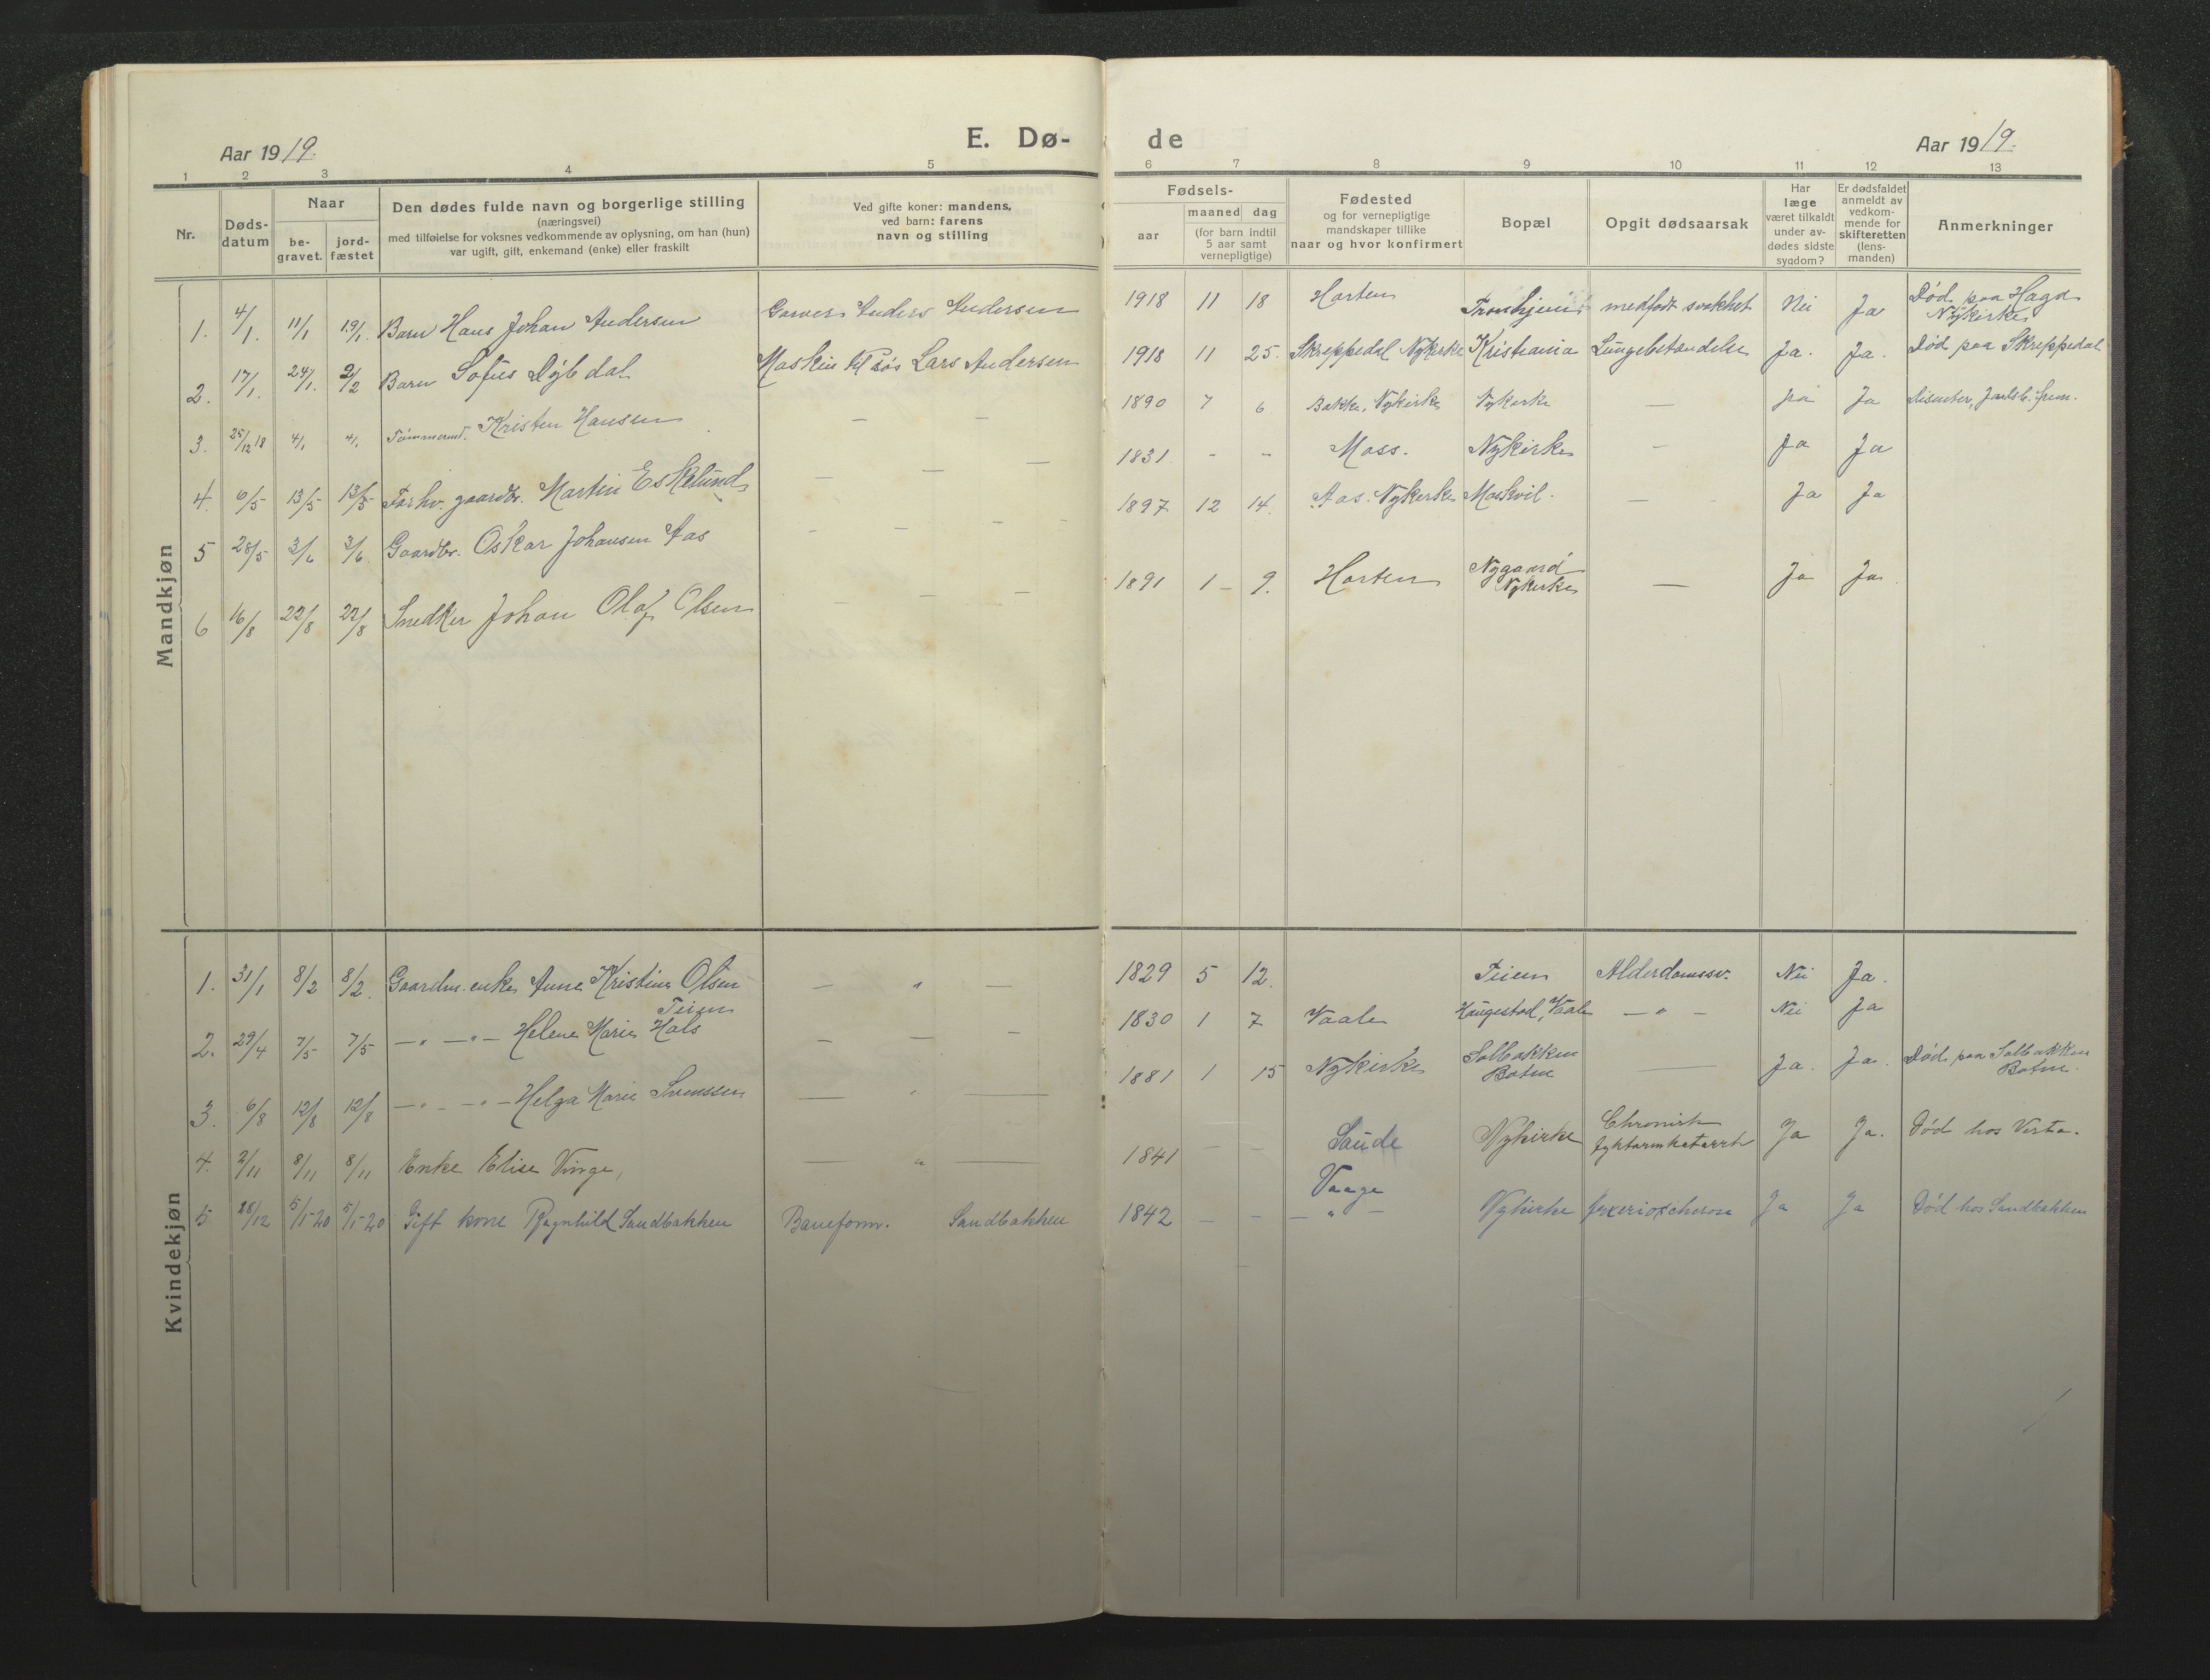 Aar 1919.
E. Dø-
de
Aar 1919.
1 2 3 4 5 6 7 8 9 10 11 12 13
Nr.
Døds-
datum
Naar
be-
gravet.
jord-
fæstet
Den dødes fulde navn og borgerlige stilling
(næringsvei)
med tilføielse for voksnes vedkommende av oplysning, om han (hun)
var ugift, gift, enkemand (enke) eller fraskilt
Ved gifte koner: mandens,
ved barn: farens
navn og stilling
Fødsels-
aar
maaned dag
(for barn indtil
5 aar samt
vernepligtige)
Fødested
og for vernepligtige
mandskaper tillike
naar og hvor konfirmert
Bopæl
Opgit dødsaarsak
Har
læge
været tilkaldt
under av-
dødes sidste
sygdom?
Er dødsfaldet
anmeldt av
vedkom-
mende for
skifteretten
(lens-
manden)
Anmerkninger
Mandkjøn
1. 4/1. 11/1 19/1. Barn Hans Johan Andersen Garver Anders Andersen 1918 11 18 Horten Tronhjem medfødt svakhet Nei Ja Død paa Haga
Nykirke
2. 17/1. 24/1. 2/2 Barn Sofus Dybdal Maskin Lars Andersen 1918 11 25. Skreppedal Nykirke Kristiania Lungebetændelse Ja. Ja. Død paa Skreppedal
3. 25/12 18 4/1 4/1. Tømmermd. Kristen Hansen — — 1890 7 6 Bakke, Nykirke Nykirke — Ja Ja Disenter,
4. 6/5 13/5 13/5 Forhv. gaardbr. Martin Eskelund — — — 1831 - - Moss. Nykirke — Ja Ja
5 28/5 3/6 3/6 Gaardbr. Oskar Johansen Aas — — — 1897 12 14. Aas. Nykirke Moskvil. — Ja Ja
6 16/8 22/8 22/8 Snedker Johan Olaf Olsen — — — 1891 1 - 9. Horten Nygaard
Nykirke — Ja Ja
Kvindekjøn
1. 31/1 8/2 8/2. Gaardm. enke Anne Kristine Olsen
Teien — " — 1829 5 12. Teien Alderdomssv. Nei Ja.
2. 29/4 7/5 7/5 —"—"— Helene Marie Hals — — — 1830 1 7 Vaale Haugestad, Vaale — " — Nei Ja
3. 6/8 12/8 12/8 —"—"— Helga Marie Svenssen — " — 1881 1 15 Nykirke Solbakken
Botne — Ja. Ja. Død paa Solbakken
Botne.
4. 2/11 8/11 8/11 Enke Elise Vinge, — " — 1841 — — Saude Nykirke Chronisk
tyktarmkatarrh Ja Ja. Død hos Verta.
5 28/12 5/1-20 5/1-20 Gift kone Ragnhild Sandbakken Baneform. Sandbakken 1842 — — Vaage
— " — Nykirke Ja Ja Død hos Sandbakken